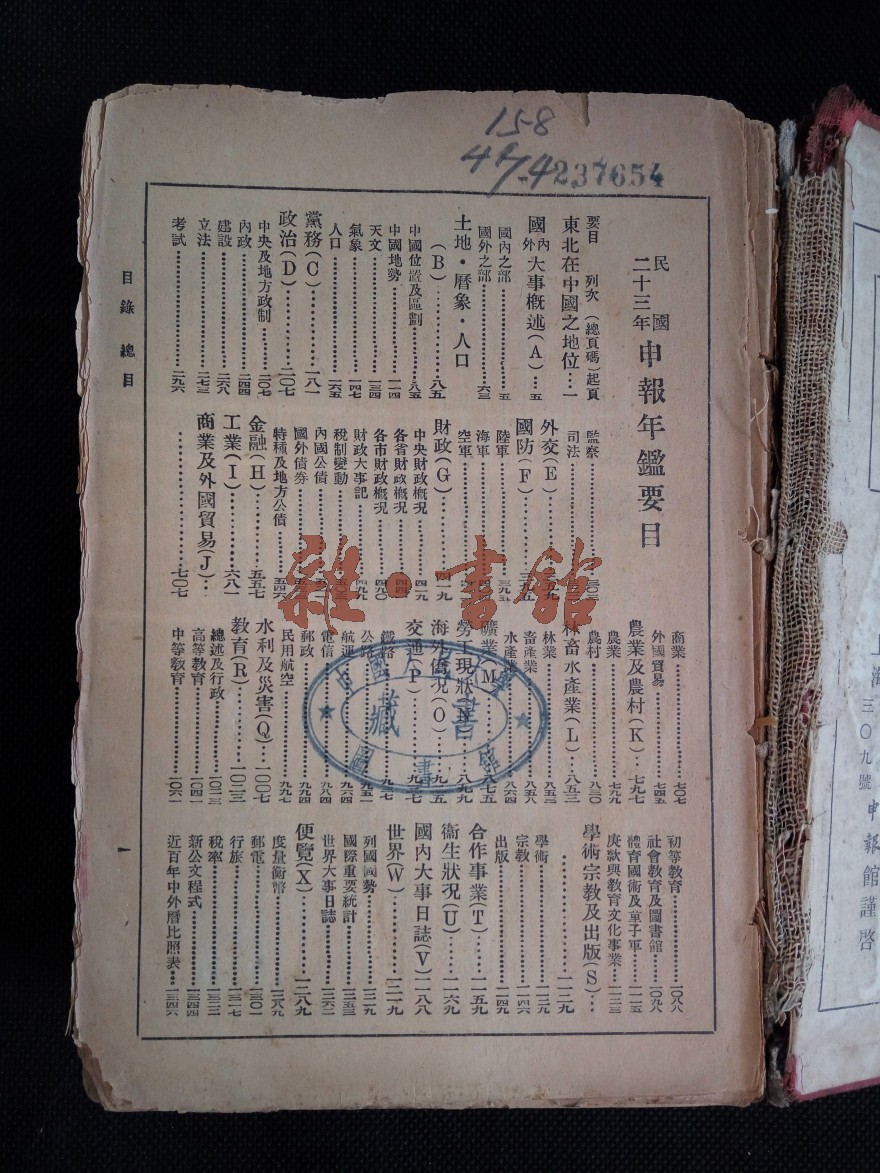 158
47.4237654
民國
二十三年
申報年鑑要目
要目 列次 (總頁碼)起頁
東北在中國之地位…一
國內外大事概述(A)…五
國內之部……五
國外之部……六三
土地·曆象·人口
(B)……八五
中國位置及區劃……八五
中國地勢……一一四
天文……一三四
氣象……一四七
人口……一六五
黨務(C)……一八一
政治(D)……二〇七
中央及地方政制……二〇七
內政……二四四
建設……二六八
立法……二七三
考試……二九六
監察
司法
外交(E)
國防(F)
陸軍
海軍
空軍
財政(G)……四一九
中央財政概况……四一九
各省財政概况
各市財政概况……四九〇
財政大事記
稅制變動
內國公債
國外債券
特種及地方公債……五四六
金融(H)……五五七
工業(I)……六八一
商業及外國貿易(J)…
……七〇七
商業……七〇七
外國貿易……七四五
農業及農村(K)…七九七
農業……七九七
農村……八三〇
林畜水產業(L)…八五三
林業……八五三
畜產業……八五八
水產業……八六四
礦業(M)…八七五
勞工現狀(N)…八九九
海外僑況(O)
交通(P)
鐵路
公路……九五一
航運……九六四
電信……九八四
郵政……九九四
民用航空……九九七
水利及災害(Q)…一〇〇七
教育(R)……一〇二三
總述及行政……一〇二三
高等教育……一〇四一
中等教育……一〇六一
初等教育……一〇八八
社會教育及圖書館……一〇九八
體育國術及童子軍……一一一五
庚款與教育文化事業……一一二三
學術宗教及出版(S)…
……一一三九
學術……一一三九
宗教……一一四六
出版……一一四九
合作事業(T)……一一五九
衞生狀况(U)……一一六九
國內大事日誌(V)一一八八
世界(W)……一二一九
列國國勢……一二一九
國際重要統計……一二五三
世界大事日誌……一二六二
便覽(X)……一二八九
度量衡幣……一二八九
郵電……一三〇一
行旅……一三一七
稅率……一三三二
新公文程式……一三四四
近百年中外曆比照表……一三四六
目錄 總目
一
雜·書館
藏書
海
三〇九號
申報館謹啓